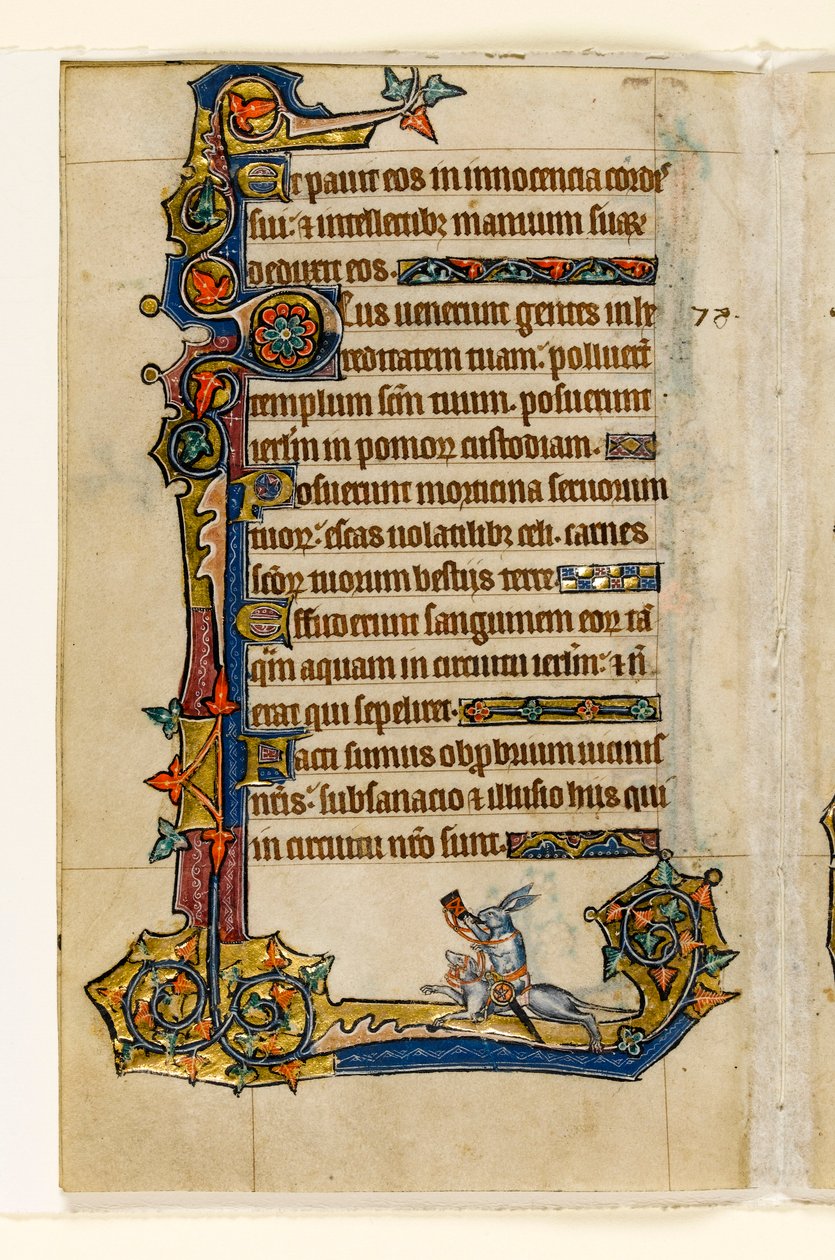 Et pauit eos in innocencia cordis
sui: & intellectibꝫ manuum suaꝝ
deduxit eos.
Deus uenerunt gentes in he
reditatem tuam: polluerũt
templum scm̄ tuum. posuerunt
ierl̄m in pomoꝝ custodiam.
Posuerunt morticina seruorum
tuoꝝ: escas uolatilibꝫ celi. carnes
scōꝝ tuorum bestiis terre
Effuderunt sanguinem eoꝝ tā
qm̄ aquam in circuitu ierl̄m: & ñ
erat qui sepeliret.
Facti sumus obꝓbrium uicinis
nr̄is: subsanacio & illusio hiis qui
in circuitu nr̄o sunt.
78.